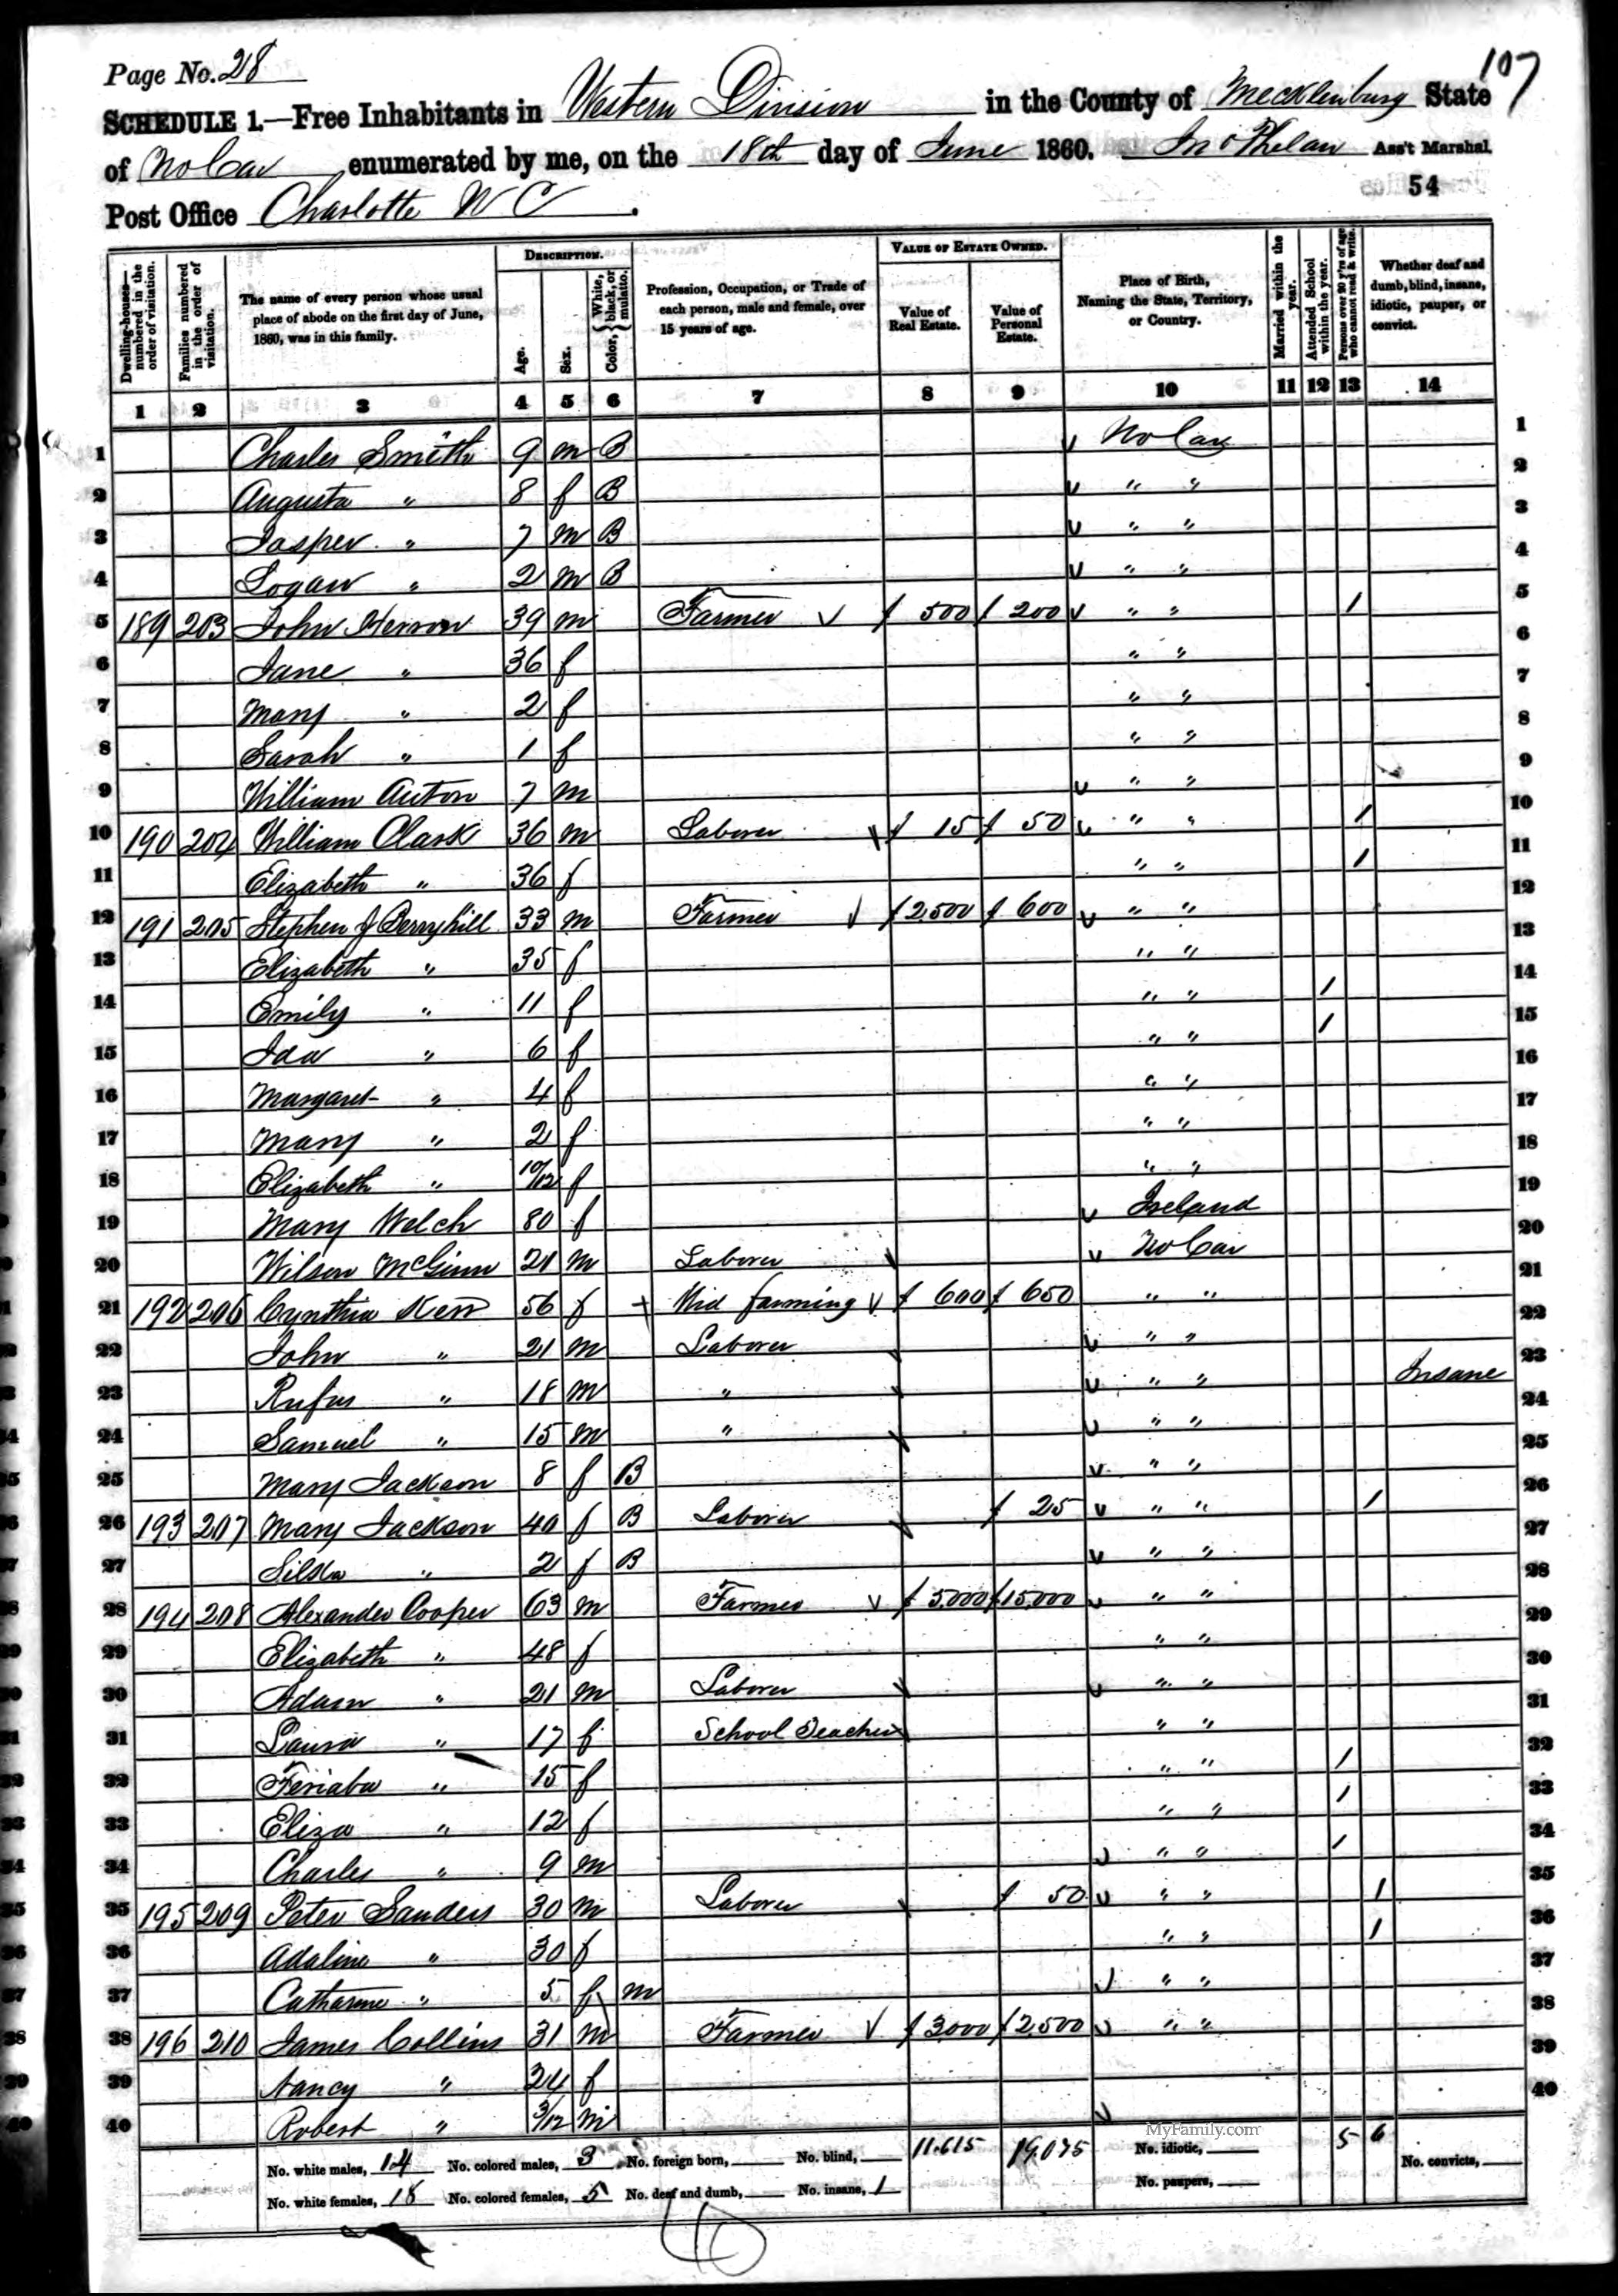 Page No. 28
107
SCHEDULE 1.—Free Inhabitants in Western Division in the County of Mecklenburg State
of No Car enumerated by me, on the 18th day of June 1860. Jno Phelan Ass't Marshal.
54
Post Office Charlotte N C
DESCRIPTION. VALUE OF ESTATE OWNED.
Dwelling-houses—numbered in the order of visitation. Families numbered in the order of visitation. The name of every person whose usual place of abode on the first day of June, 1860, was in this family. Age. Sex. Color, { White, black, or mulatto. Profession, Occupation, or Trade of each person, male and female, over 15 years of age. Value of Real Estate. Value of Personal Estate. Place of Birth, Naming the State, Territory, or Country. Married within the year. Attended School within the year. Persons over 20 y'rs of age who cannot read & write. Whether deaf and dumb, blind, insane, idiotic, pauper, or convict.
1 2 3 4 5 6 7 8 9 10 11 12 13 14
1 Charles Smith 9 m B No Car 1
2 Augusta " 8 f B " " 2
3 Jasper " 7 m B " " 3
4 Logan " 2 m B " " 4
5 189 203 John Herron 39 m Farmer $ 500 $ 200 " " / 5
6 Jane " 36 f " " 6
7 Mary " 2 f " " 7
8 Sarah " 1 f " " 8
9 William Auton 7 m " " 9
10 190 204 William Clark 36 m Laborer $ 15 $ 50 " " / 10
11 Elizabeth " 36 f " " / 11
12 191 205 Stephen J Berryhill 33 m Farmer $ 2,500 $ 600 " " 12
13 Elizabeth " 35 f " " 13
14 Emily " 11 f " " / 14
15 Ida " 6 f " " / 15
16 Margaret " 4 f " " 16
17 Mary " 2 f " " 17
18 Elizabeth " 10/12 f " " 18
19 Mary Welch 80 f Ireland 19
20 Wilson McGinn 21 m Laborer No Car 20
21 192 206 Cynthia Kerr 56 f + Wid farming $ 600 $ 650 " " 21
22 John " 21 m Laborer " " 22
23 Rufus " 18 m " " " Insane 23
24 Samuel " 15 m " " " 24
25 Mary Jackson 8 f B " " 25
26 193 207 Mary Jackson 40 f B Laborer $ 25 " " / 26
27 Silka " 2 f B " " 27
28 194 208 Alexander Cooper 63 m Farmer $ 5,000 $ 15,000 " " 28
29 Elizabeth " 48 f " " 29
30 Adam " 21 m Laborer " " 30
31 Laura " 17 f School Teacher " " 31
32 Feriaba " 15 f " " / 32
33 Eliza " 12 f " " / 33
34 Charles " 9 m " " / 34
35 195 209 Peter Sanders 30 m Laborer $ 50 " " / 35
36 Adaline " 30 f " " / 36
37 Catharine " 5 f m " " 37
38 196 210 James Collins 31 m Farmer $ 3,000 $ 2,500 " " 38
39 Nancy " 24 f 39
40 Robert " 3/12 m 40
MyFamily.com
No. white males, 14 No. colored males, 3 No. foreign born, No. blind, 11,615 19,075 No. idiotic, 5 6 No. convicts,
No. white females, 18 No. colored females, 5 No. deaf and dumb, No. insane, 1 No. paupers,